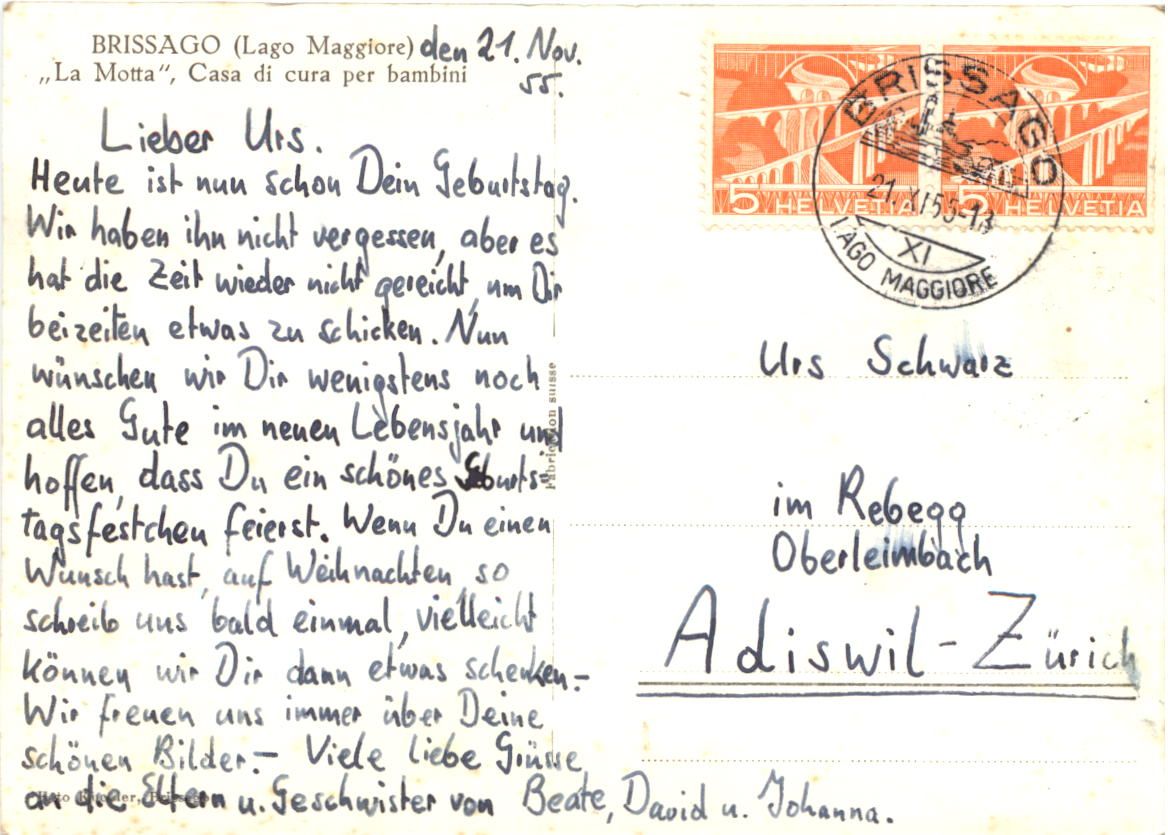 BRISSAGO (Lago Maggiore) den 21. Nov.
„La Motta“, Casa di cura per bambini 55.
Lieber Urs.
Heute ist nun schon Dein Geburtstag.
Wir haben ihn nicht vergessen, aber es
hat die Zeit wieder nicht gereicht, um Dir
beizeiten etwas zu schicken. Nun
wünschen wir Dir wenigstens noch
alles Gute im neuen Lebensjahr und
hoffen, dass Du ein schönes Geburts=
tagsfestchen feierst. Wenn Du einen
Wunsch hast, auf Weihnachten, so
schreib uns bald einmal, vielleicht
können wir Dir dann etwas schenken.-
Wir freuen uns immer über Deine
schönen Bilder.- Viele liebe Grüsse
an die Eltern u. Geschwister von Beate, David u. Johanna.
Fabrication suisse
5 HELVETIA 5 HELVETIA
BRISSAGO
21. XI 55-13
XI
LAGO MAGGIORE
Urs Schwarz
im Rebegg
Oberleimbach
Adiswil-Zürich